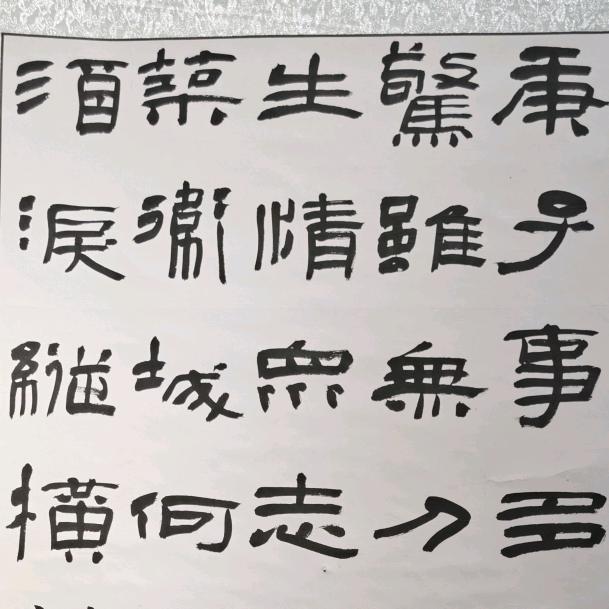 庚子事多
驚雖無刀
生情眾志
築衛城何
須淚縱橫